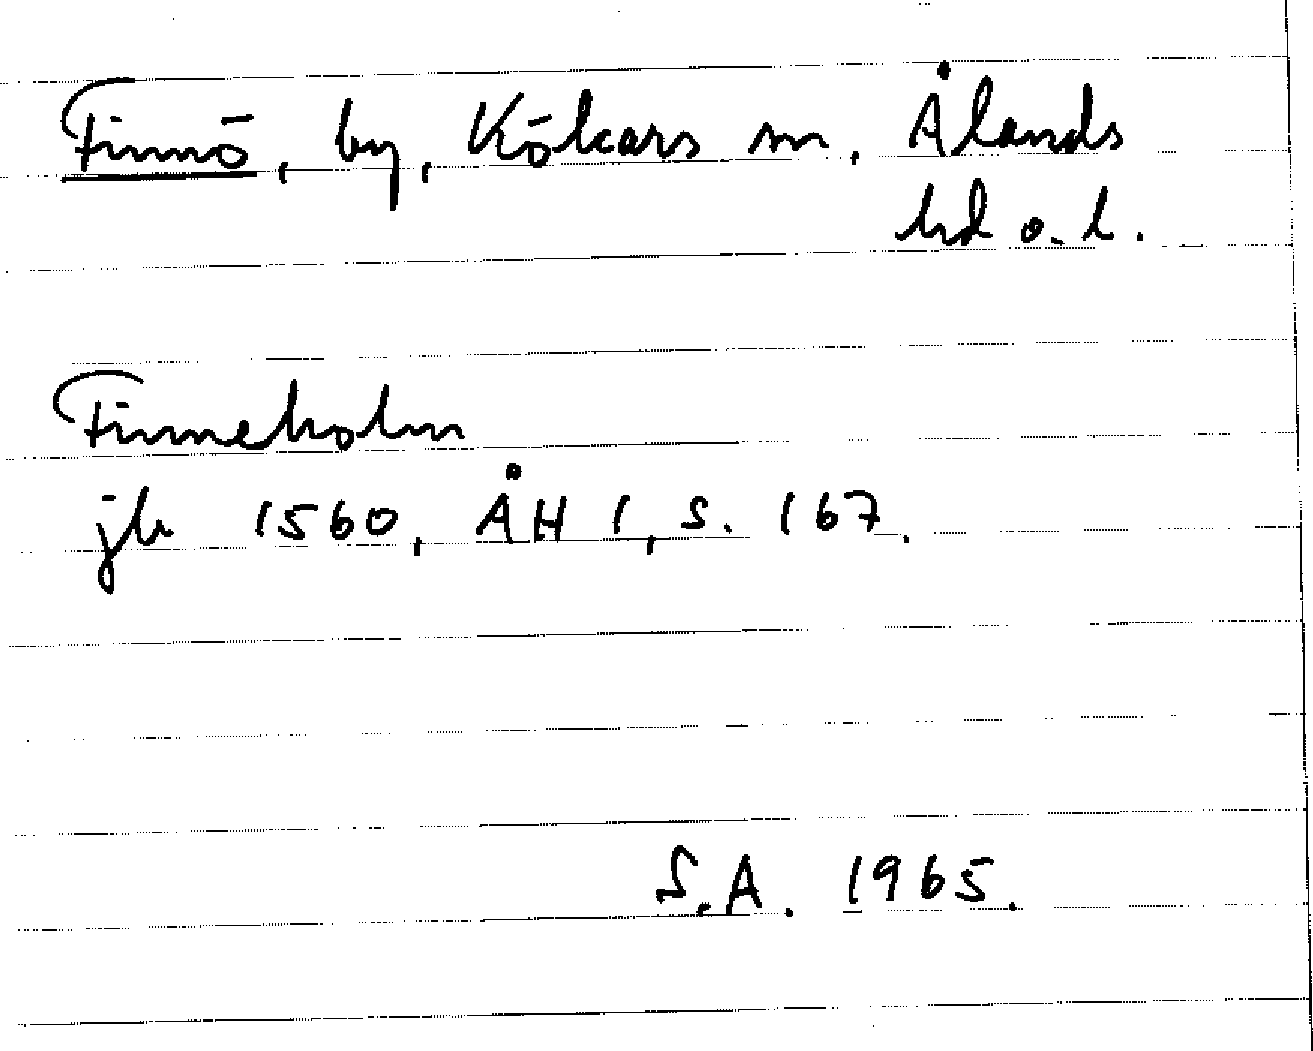 Finnö, by, Kökars sn, Ålands
hd o. l.
Finneholm
jb 1560, ÅH 1, s. 167.
S.A. 1965.